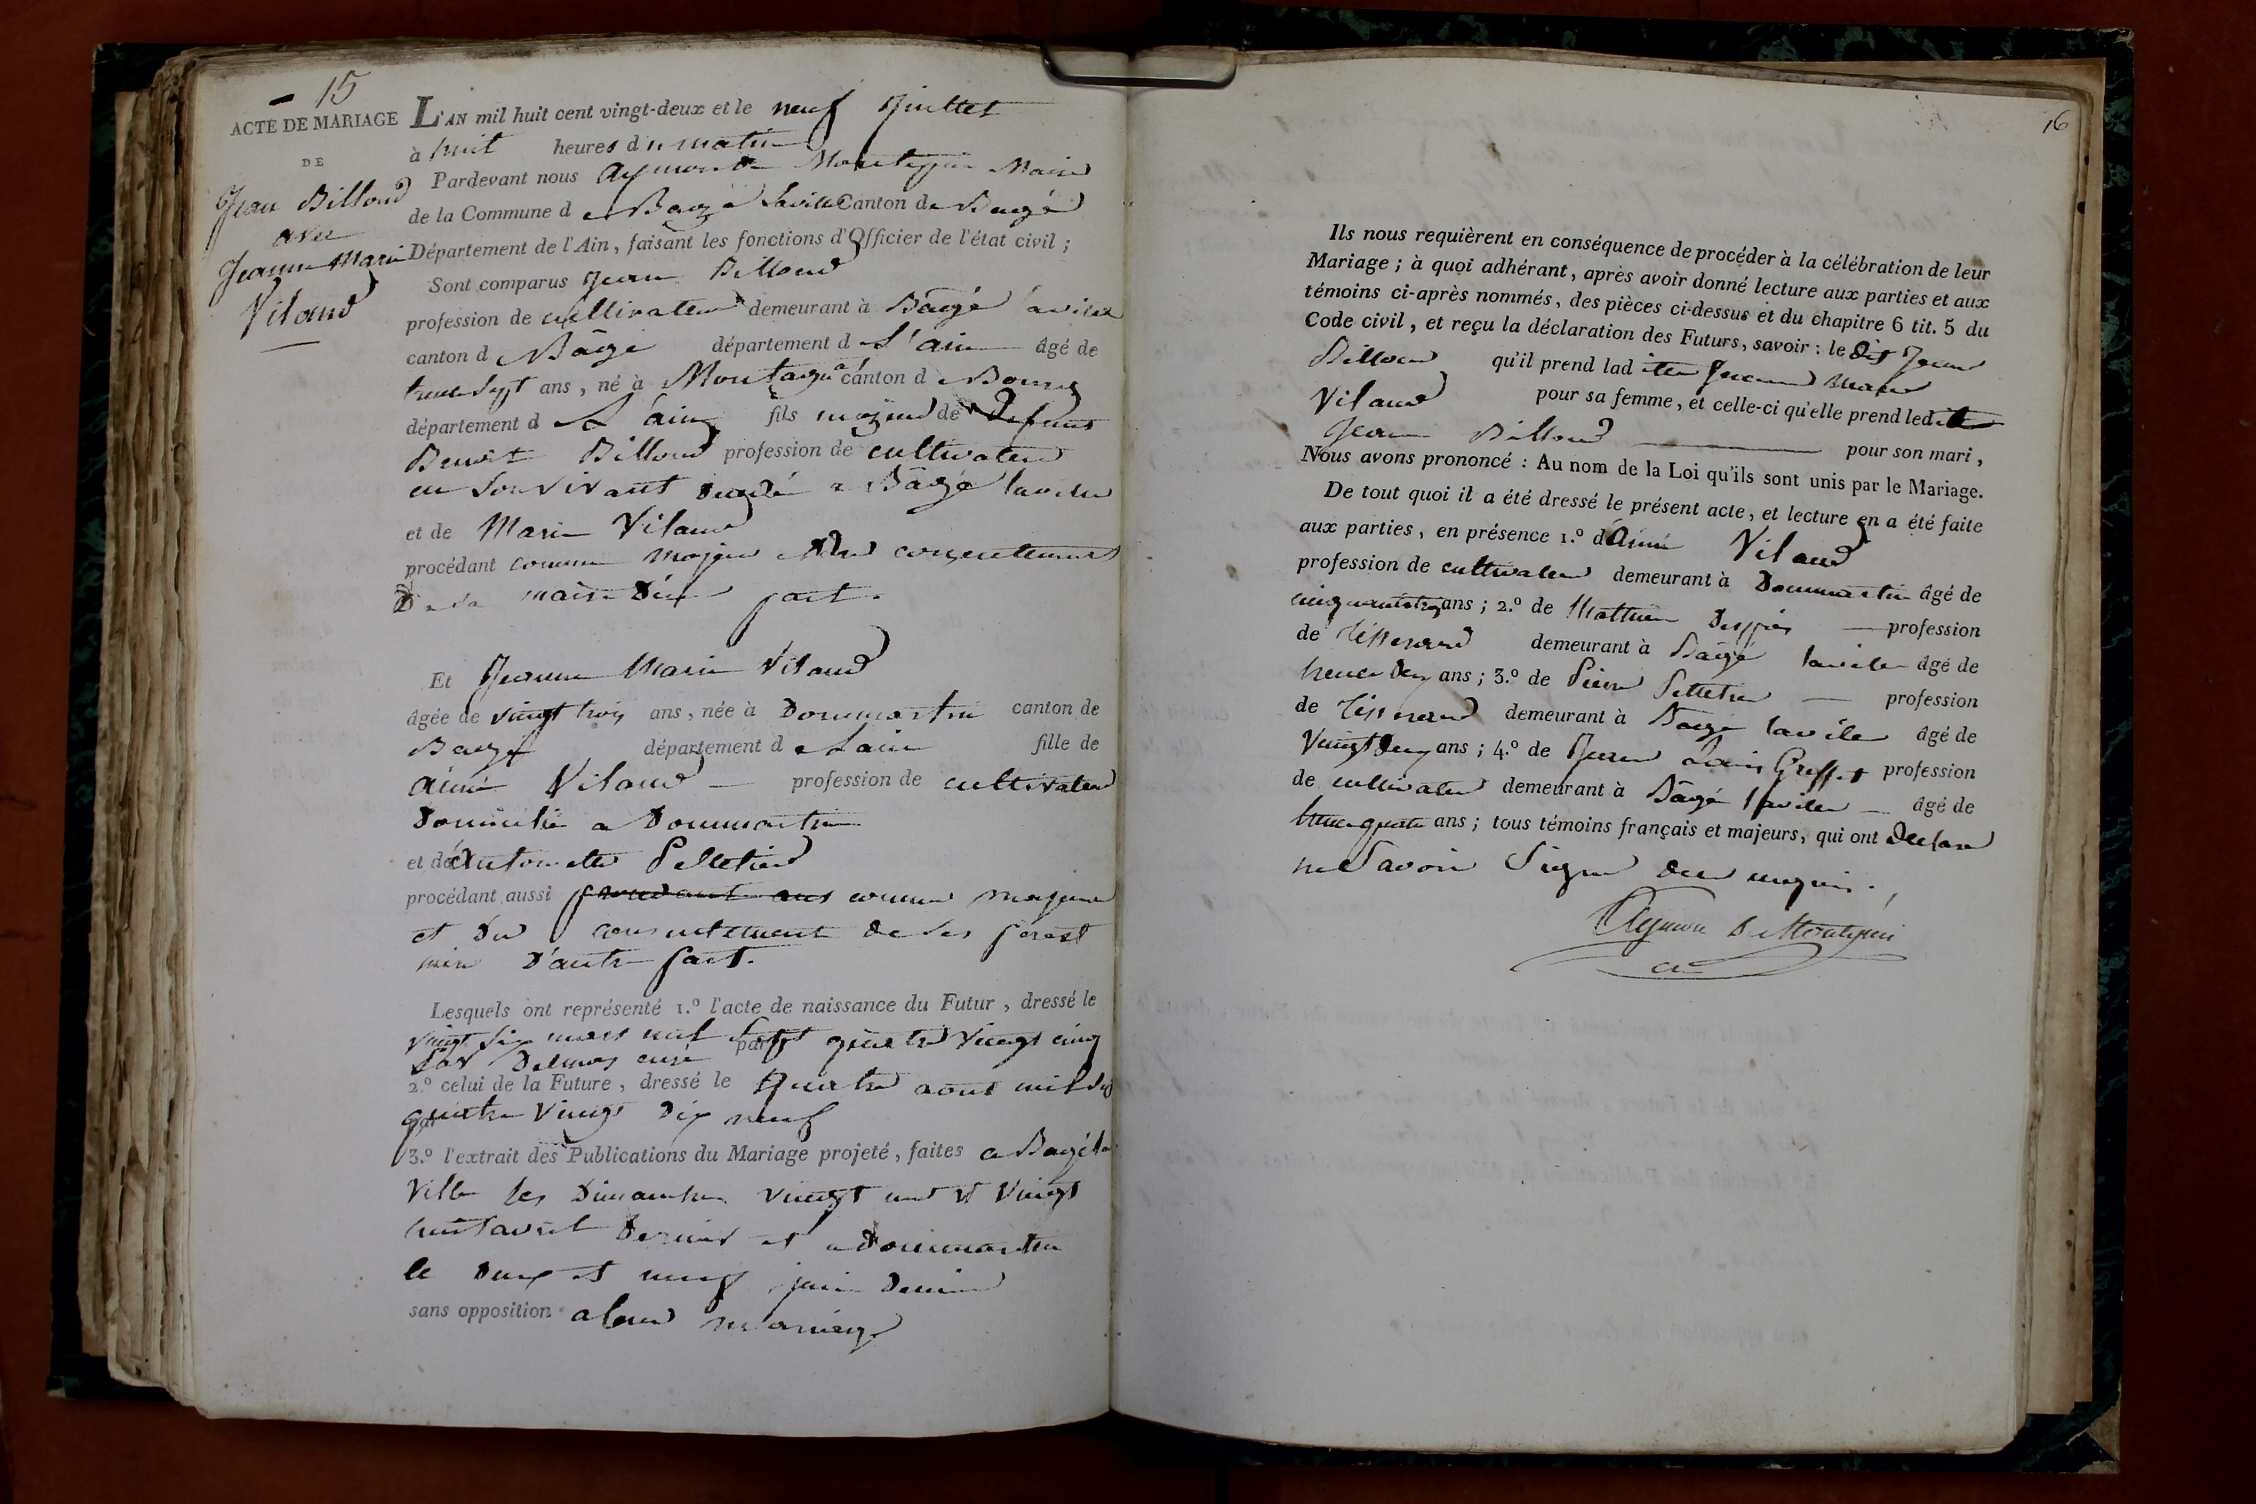 15
ACTE DE MARIAGE
DE
Jean Billoud
avec
Jeanne Marie
Viland
L'AN mil huit cent vingt-deux et le neuf Juillet
à huit heures du matin
Pardevant nous Aymon de Montepin Maire
de la Commune de Bagé laville Canton de Bagé
Département de l'Ain, faisant les fonctions d'Officier de l'état civil ;
Sont comparus Jean Billoud
profession de cultivateur demeurant à Bâgé laville
canton de Bâgé département de L'ain âgé de
trente Sept ans, né à Montagna canton de Bourg
département de L'ain fils majeur de Defunt
Benoit Billoud profession de cultivateur
en Son vivant à Bâgé laville
et de Marie Viland
procédant comme majeur et du consentement
De Sa mère D'une part.
Et Jeanne Marie Viland
âgée de vingt trois ans, née à Dommartin canton de
Bagé département de Lain fille de
Aimé Viland profession de cultivateur
Domicilié a Dommartin
et d'Antoinette Pelletier
procédant aussi procedant aus comme majeure
et Du consentement de Ses peres et
mere D'autre part.
Lesquels ont représenté 1.º l'acte de naissance du Futur, dressé le
vingt Six mars mil Sept quatre vingt cinq
par Delmas curé par
2.º celui de la Future, dressé le Quatre aout mil Sept
quatre vingt Dix neuf
par
3.º l'extrait des Publications du Mariage projeté, faites a Bagé la
Ville les Dimanches vingt un et vingt
huit avril Dernier et a Dommartin
le Deux et neuf juin Dernier
sans opposition a leur mariage
16
Ils nous requièrent en conséquence de procéder à la célébration de leur
Mariage ; à quoi adhérant, après avoir donné lecture aux parties et aux
témoins ci-après nommés, des pièces ci-dessus et du chapitre 6 tit. 5 du
Code civil, et reçu la déclaration des Futurs, savoir : le dit Jean
Billoud qu'il prend lad itte Jeanne Marie
Viland pour sa femme, et celle-ci qu'elle prend ledit
Jean Billoud pour son mari,
Nous avons prononcé : Au nom de la Loi qu'ils sont unis par le Mariage.
De tout quoi il a été dressé le présent acte, et lecture en a été faite
aux parties, en présence 1.º d'Aimé Viland
profession de cultivateur demeurant à Dommartin âgé de
cinquante trois ans ; 2.º de Mathieu profession
de Tisserand demeurant à Bâgé laville âgé de
trente Deux ans ; 3.º de Pierre profession
de Tisserand demeurant à Bagé laville âgé de
Vingt Deux ans ; 4.º de Jean Louis Greffet profession
de cultivateur demeurant à Bâgé laville âgé de
trente quatre ans ; tous témoins français et majeurs, qui ont Declaré
ne Savoir Signer De ce requis.
Aymon De Montepin